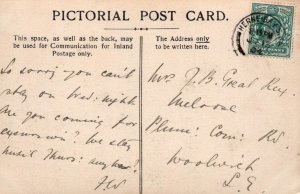 PICTORIAL POST CARD.
This space, as well as the back, may
be used for Communication for Inland
Postage only.
The Address only
to be written here.
So sorry you can't
stay on Wed: night
Are you coming for
We stay
until Thurs: any
Mrs J. B. Great Rex
Melrose
Plum: Com: Rd
Woolwich
S. E